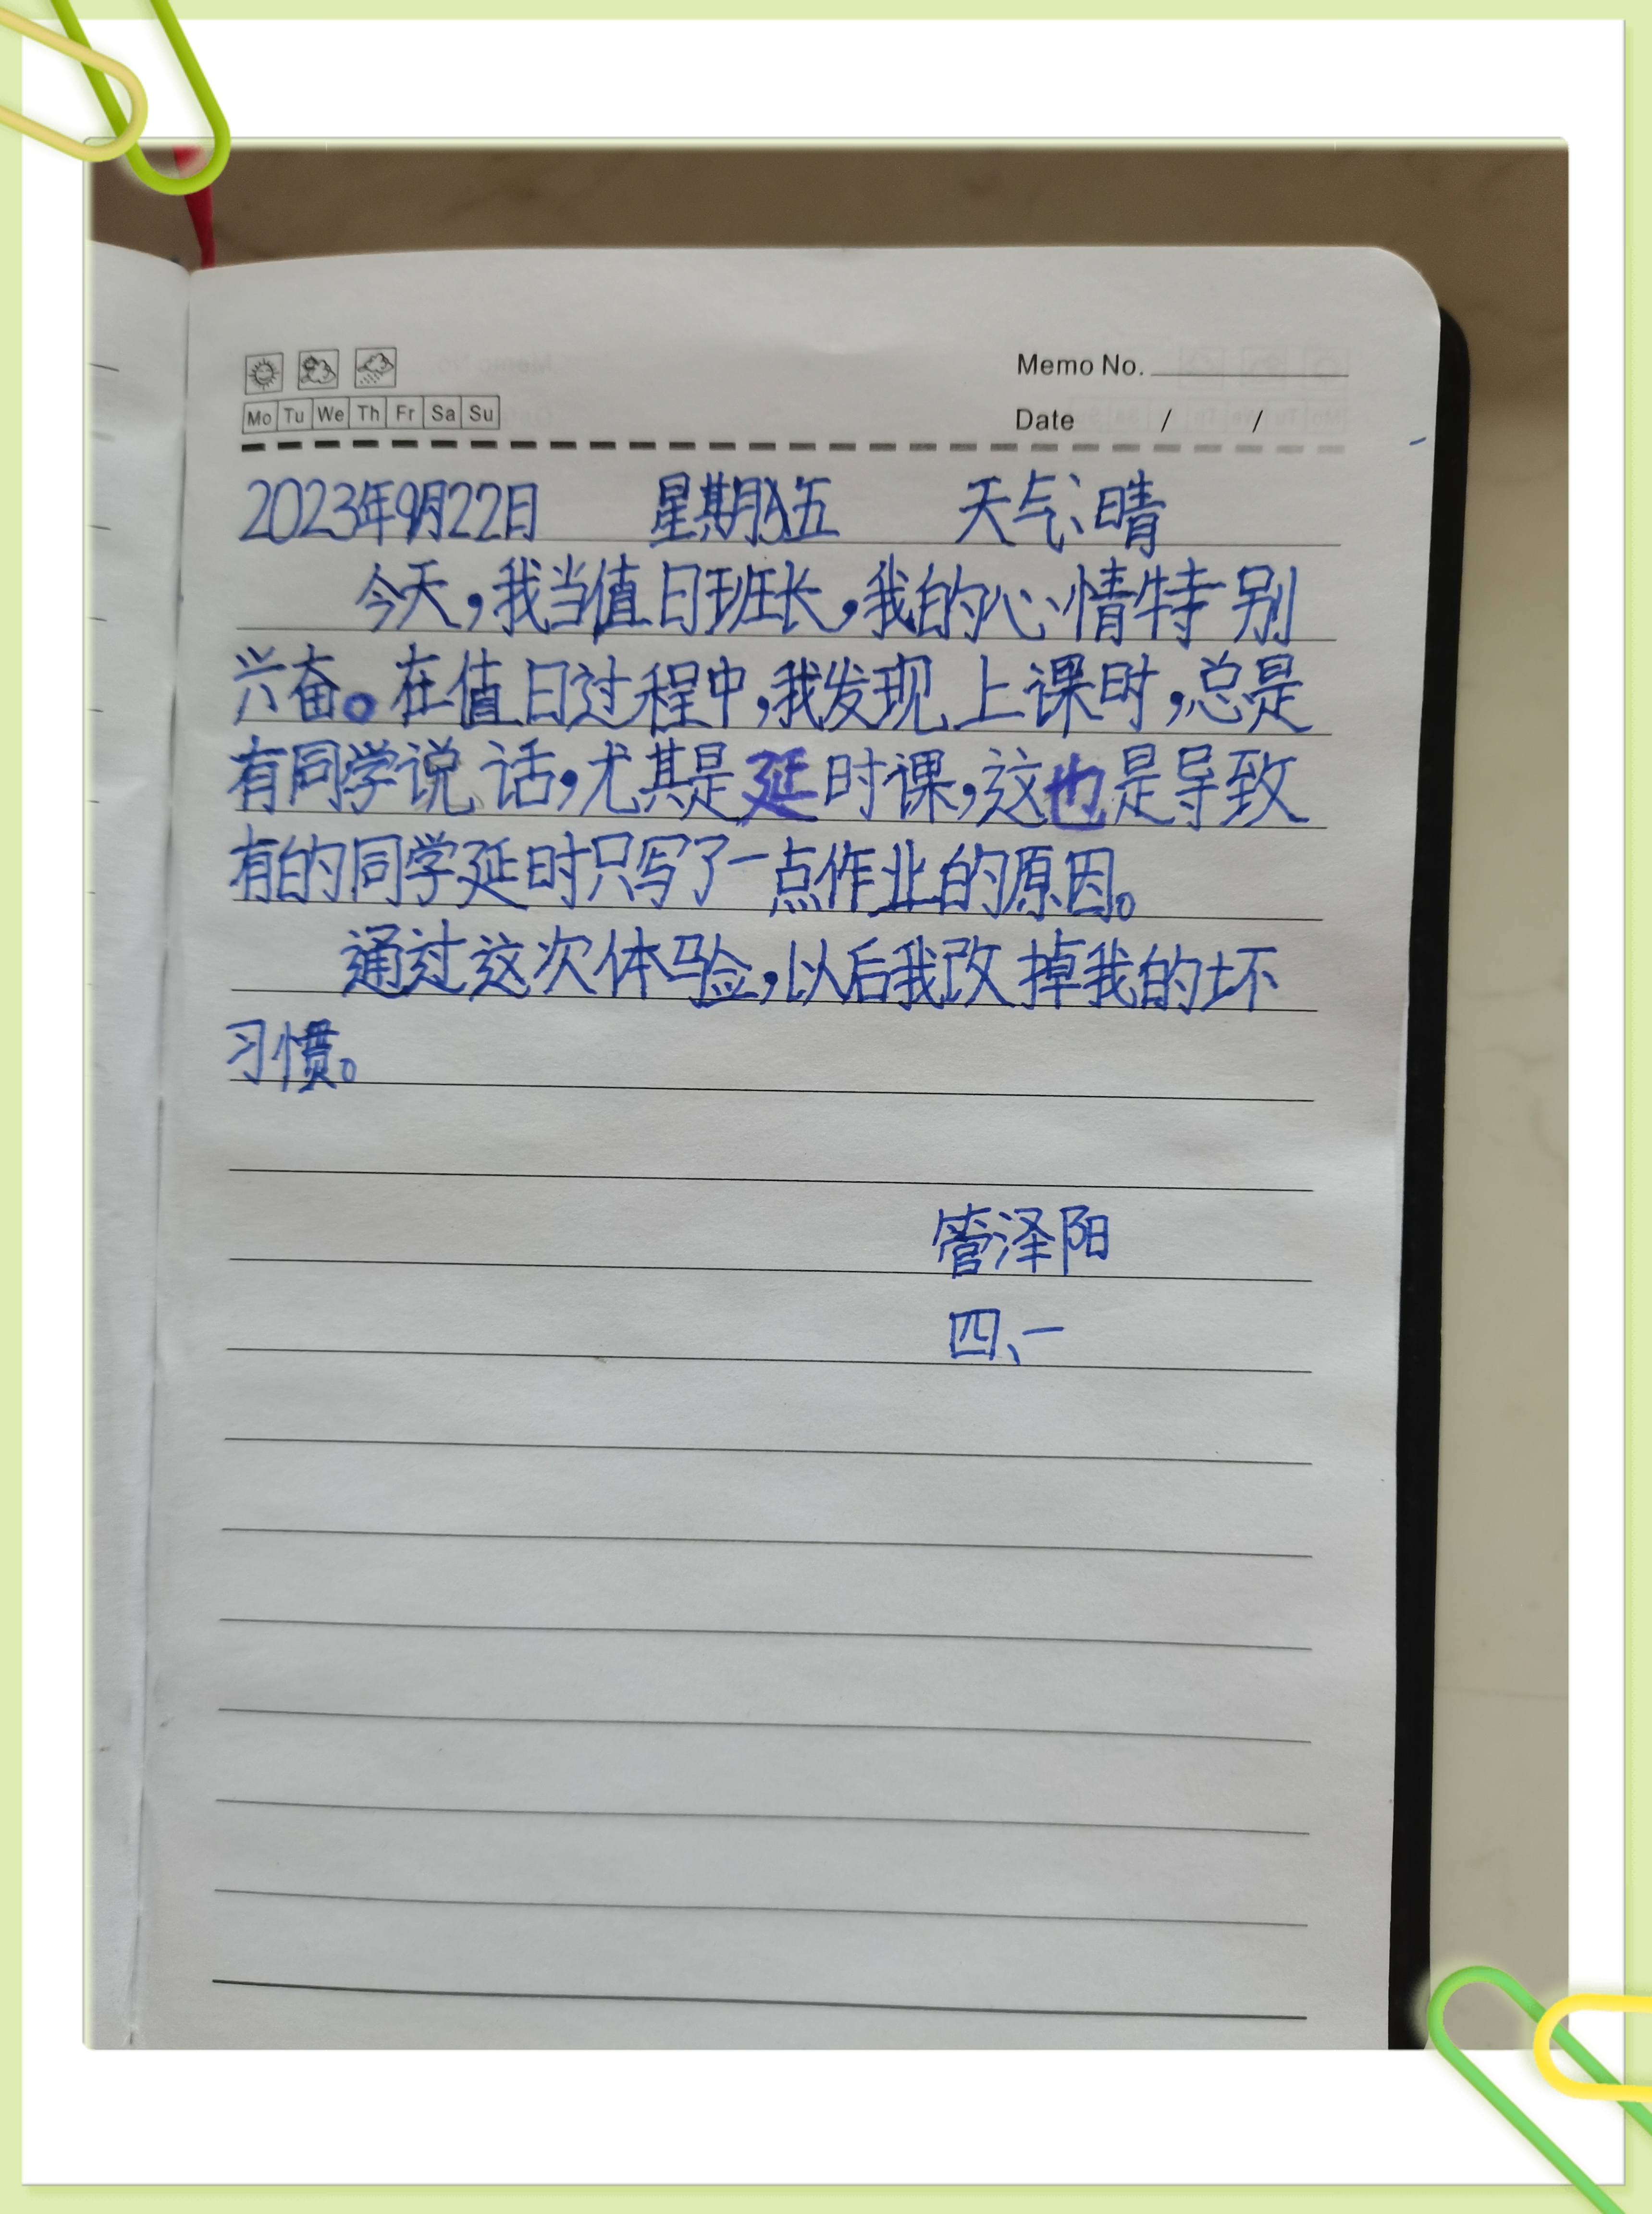 Memo No.
Mo Tu We Th Fr Sa Su
Date / /
2023年9月22日 星期五 天气:晴
今天,我当值日班长,我的心情特别
兴奋。在值日过程中,我发现上课时,总是
有同学说话,尤其是延时课,这也是导致
有的同学延时只写了一点作业的原因。
通过这次体验,以后我改掉我的坏
习惯。
管泽阳
四、一